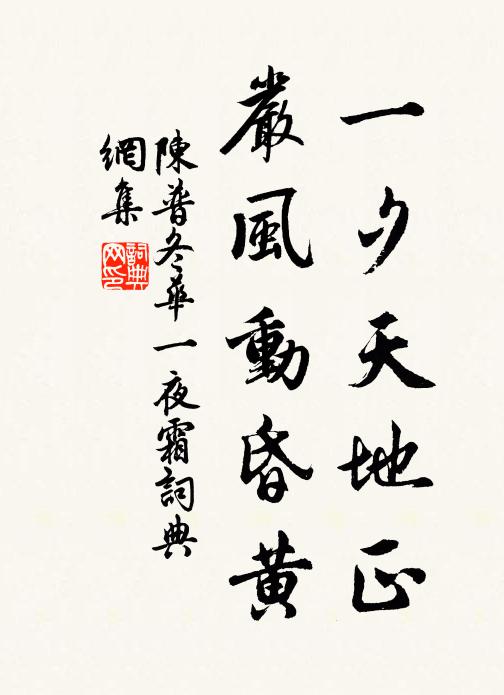 一夕天地正
嚴風動昏黃
陳普冬華一夜霜詞典
網集
詞典
网印